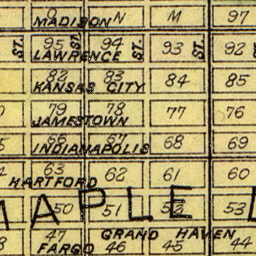 O N M 97
MADISON
ST. 95 ST. 94 ST. 93 ST. 92
LAWRENCE
82 83 84 85
KANSAS CITY
79 78 77 76
JAMESTOWN
66 67 68 69
INDIANAPOLIS
63 62 61 60
HARTFORD
MAPLE
50 51 52 53
47 GRAND HAVEN
FARGO 46 45 44